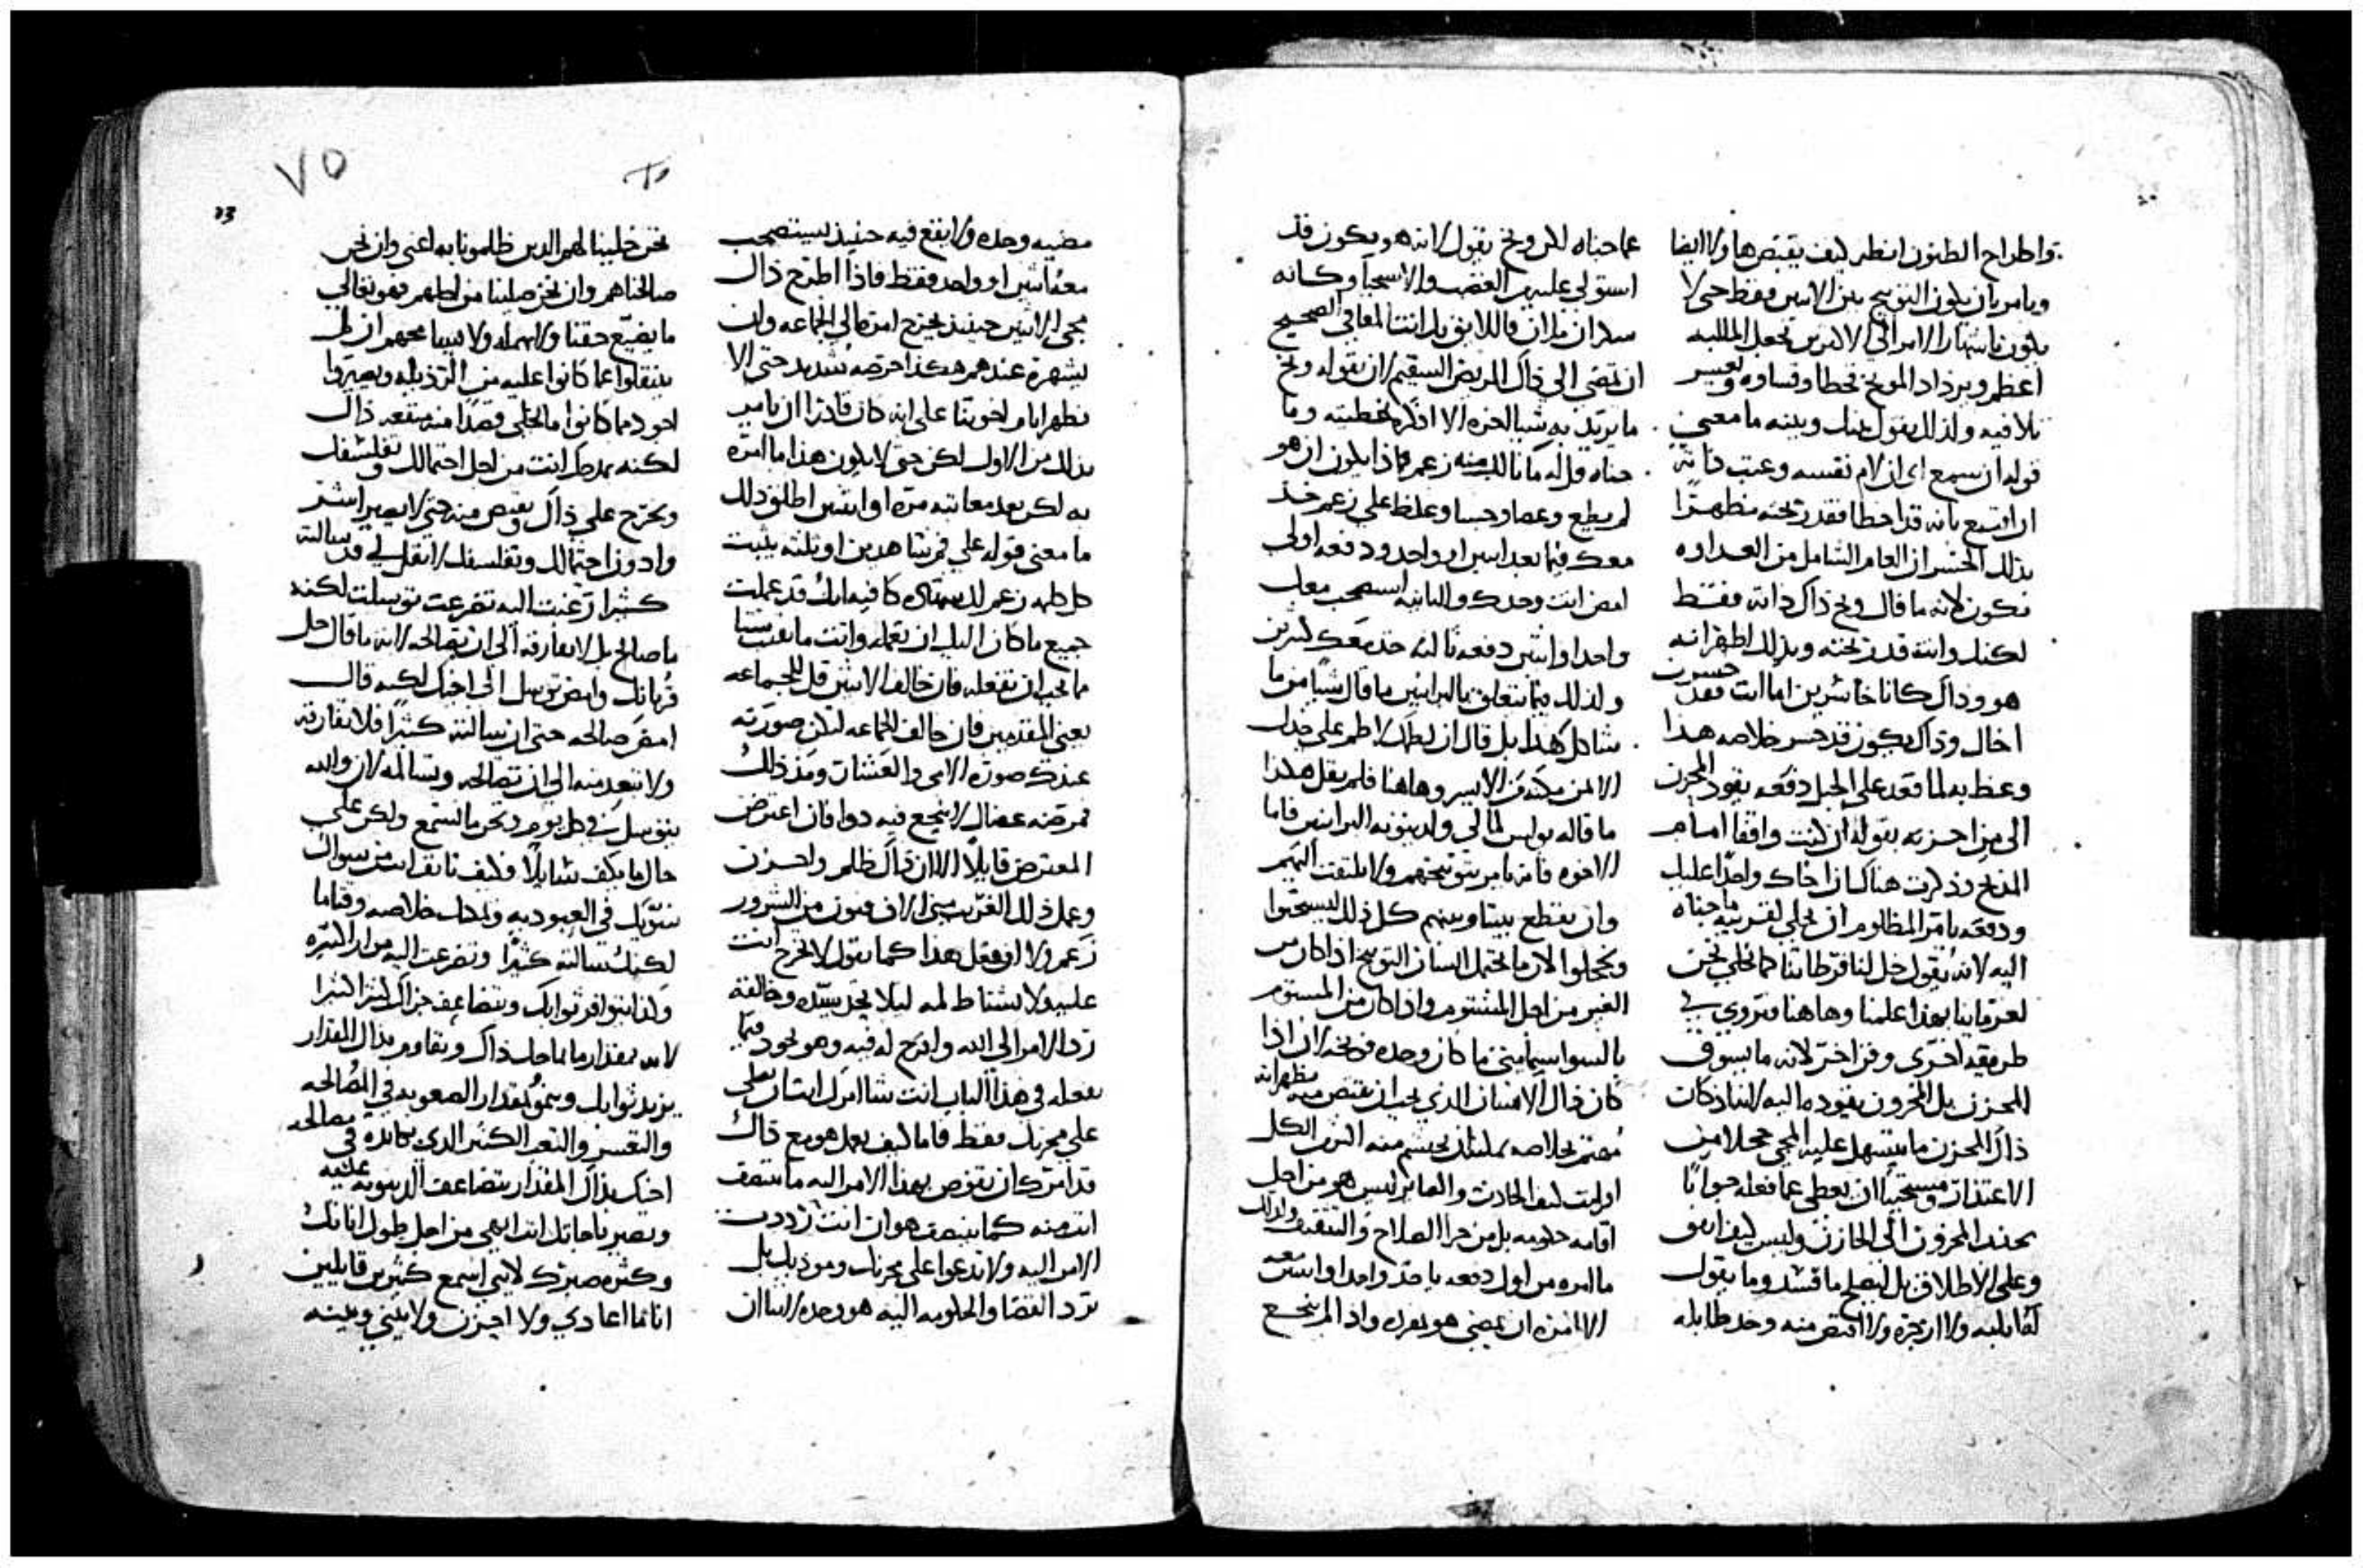 واطراح الظنون انظر كيف يقتص ها ولا ايضا
ويامر بان يكون التوبيخ بين الاثنين فقط حتى لا
يكون باشهار الامر الي الاكثرين تجعل المثلبه
اعظم ويزداد الموبخ تحطا وقساوه وتعسر
تلافيه ولذلك يقول بينك وبينه ما معني
قوله ان سمع اي ان لام نفسه وعتب ذاته
ان اقتنع بانه قد اخطا فقد ربحته مظهرًا
بذلك الخسران العام الشامل من العداوه
فكون لانه ما قال ربح ذاك ذاته فقط
لكنك وانت قد ربحته وبذلك اظهر انه
هو وذاك كانا خاسرين اما انت فقد خسرت
اخاك وذاك يكون قد خسر خلاصه هذا
وعظ به لما قعد على الجبل دفعه يقود المحزن
الى من احزنه بقوله ان كنت واقفا امام
المذبح وذكرت هناك ان اخاك واجدًا عليك
ودفعه يامر المظلوم ان يخلي لقريبه ما جناه
اليه لانه يقول خل لنا فرطاتنا كما نخلي نحن
لغرماينا بهذا علمنا وها هنا فتروي في
طريقه اخرى وفن اخر لانه ما يسوق
المحزن بل المحزون يقوده اليه لان اذ كان
ذاك المحزن ما يتسهل عليه المجي خجلا من
الاعتذار ومستحييا ان يعطى عما فعله جوابًا
يجذب المحزون الى الحازن وليس كيف اتفق
وعلى الاطلاق بل ليصلح ما فسد وما يقول
قابله ولا ازجره ولا اقتص منه وخذ طايله
عما جناه لكن وبخ يقول لانه هو يكون قد
استولي عليه من الغضب والاستحيا وكانه
سكران فاللايق بك انت المعافى الصحيح
ان تمضي الى ذاك المريض السقيم لان بقوله وبخ
ما يريد به شيا اخر الا اذكره بخطيته وما
جناه قل له ما نالك منه زعم فماذا يكون ان هو
لم يطع وعصا وجسا وغلظ على زعم خذ
معك فيما بعد اثنين او واحد ودفعه اولى
امض انت وحدك والثانيه استصحب معك
واحدا او اثنين دفعه ثالثه خذ معك كثيرين
ولذلك فيما يتعلق بالبرانيين ما قال شيًا من ما
شاكل هذا بل قال ان لطمك لاطم على خدك
الايمن مكنه من الايسر وها هنا فلم يقل هكذا
ما قاله بولس لما لي ولدينونه البرانيين فاما
الاخوه فانه يامر بتوبيخهم ولا يلتفت اليهم
وان يقطع بيننا وبينهم كل ذلك ليستحيوا
ويخجلوا الان ما يحتمل انسان التوبيخ اذا كان من
الغير من اجل المشتوم واذا كان من المشتوم
بالسوا سيما متى ما كان وحده فوبخه لان اذا
كان ذاك الانسان الذي يجب ان يقتص منه مظهر انه
مهتم بخلاصه يمكنه ان يحتشم منه اكثر من الكل
اقامه خلومه بل من جرا الصلاح والتثقيف ولذلك
ما امره من اول دفعه ياخذ واحدا واثنين معه
الا امره ان يمضي هو بمفرده واذا لم ينجع
٧٥
23
مضيه وحده ولا ينفع فيه حينيذ ليستصحب
معه اثنين او واحد فقط فاذا اطرح ذاك
مجي الاثنين حينيذ يخرج امره الى الجماعه وان
يشهره عندهم هكذا حرصه شديد حتى الا
نظهر اثام اخوتنا على انه كان قادرا ان يامر
بذلك من الاول لكن حتى لا يكون هذا ما امره
به لكن بعد معاتبته مره او اثنين اطلق ذلك
ما معنى قوله على فم شاهدين او ثلثه يثبت
كل كلمه زعم لك شهاده كافيه انك قد عملت
جميع ما كان اليك ان تعمله وانت ما نقصت شيا
ما يجب ان تفعله فان خالف الاثنين قل للجماعه
يعني المقدمين فان خالف الجماعه لتكن صورته
عندك صوره الامي والعشار ومذ ذلك
فمرضه عضال لا ينجع فيه دوا فان اعترض
المعترض قايلًا الا ان ذاك ظلم واحزن
وعمل ذلك الغريب مني الاف فنون من الشرور
زعم ولا او فعل هذا كما يقول لا تحرج انت
عليه ولا نشتاط لمه ليلا يجد سيده وخالقه
رد الامر الى الله وابتهج له فيه وهو يجود فيما
يفعله في هذا الباب انت شا امرك ان تصلي
على محزنك فقط فاما كيف يعمل هو مع ذاك
قد امرك ان تفوض بهذا الامر اليه ما تنتصف
انت منه كما ينتصف هو ان انت رددت
الامر اليه ولا تدعوا على محزنك وموذيك بل
ترد القضا والحكومه اليه هو وحده لاننا ان
نحن خلينا لهم الدين ظلمونا به اعني وان نحن
صالحناهم وان نحن صلينا من اجلهم فهو تعالى
ما يضيع حقنا ولا يهمله ولا سيما معهم ان لم
ينتقلوا عما كانوا عليه من الرذيله ويصيروا
اجود مما كانوا ما يخلي قصدًا منه منفعه ذاك
لكنه يمدحك انت من اجل احتمالك وتفلسفك
ويحرج على ذاك ويقتص منه حتى لا يصير اشر
وادون احتمالك وتفلسفك لا تقل لي قد سالته
كثيرا رغبت اليه تضرعت توسلت لكنه
ما صالح بل لا تفارقه الى ان تصالحه لانه ما قال خل
قربانك وامض توسل الى اخيك لكنه قال
امض صالحه حتى ان سالته كثيرًا فلا تفارقه
ولا تبعد منه الى ان تصالحه وتسالمه لان والله
يتوسل في كل يوم ونحن ما نسمع ولكن على
حال ما يكف سايلًا فكيف تانف انت من سوال
شريكك في العبوديه خلاصه وقتاما
لكنك سالته كثيرًا وتضرعت اليه مرارا كثيره
ولذا يتوافر ثوابك ويتضاعف جزاك كثيرا
لانه بمقدار ما يماحك ذاك وتقاوم بذاك المقدار
يزيد ثوابك وينمو بمقدار الصعوبه في المصالحه
والتعسر والتعب الكثير الذي تكابده في مصالحه
اخيك بذاك المقدار يتضاعف الدينونه عليه
وتصير ناحاتك انت ابهى من اجل طول اناتك
وكثره صبرك لاني اسمع كثيرين قايلين
انا ما اعادي ولا احزن ولا بيني وبينه